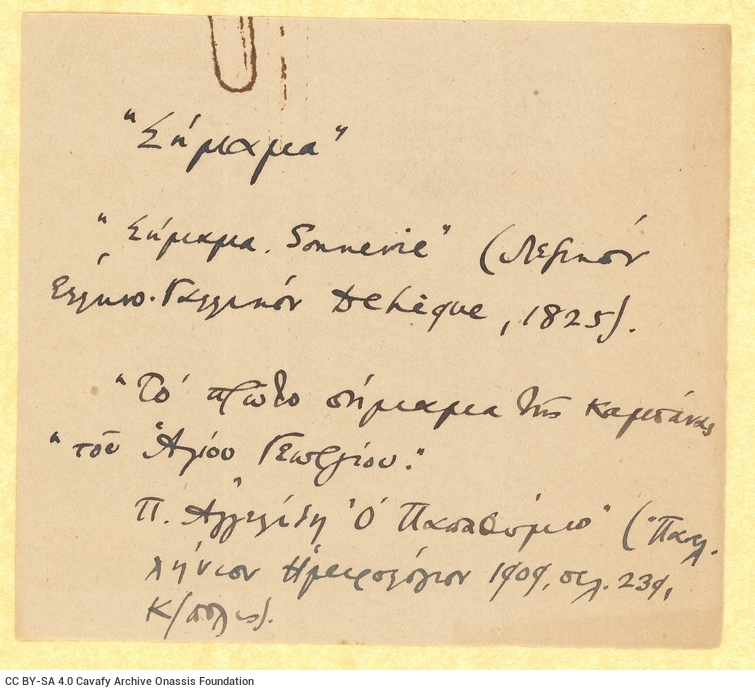 "Σήμαμα"
"Σήμαμα. Sonnerie" (Λεξικόν
Ἑλληνο-Γαλλικόν Dehèque, 1825).
"Τό πρῶτο σήμαμα τῆς καμπάνας
"τοῦ Ἁγίου Γεωργίου."
Π. Ἀγγελίδη "Ὁ Παπαθύμιο" ("Πανελ-
λήνιον Ἡμερολόγιον 1909, σελ. 239,
Κ/πολις).
CC BY-SA 4.0 Cavafy Archive Onassis Foundation